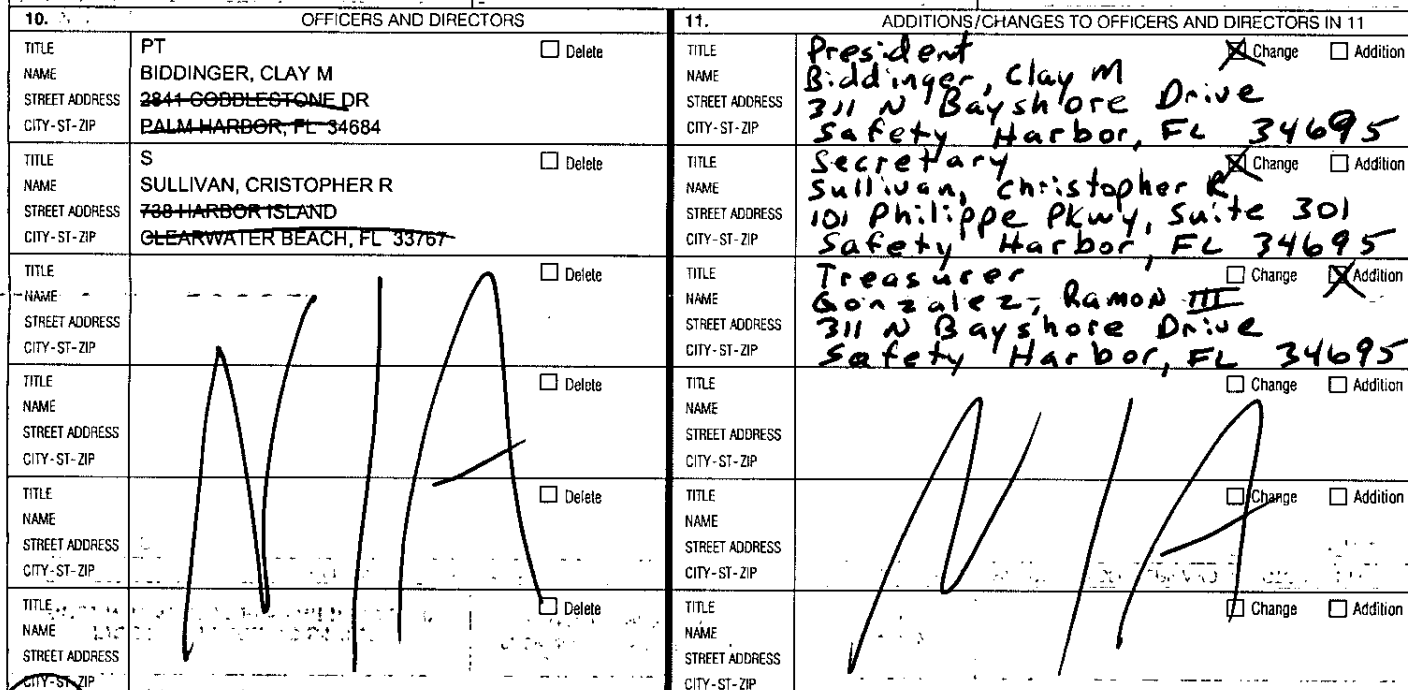 10. OFFICERS AND DIRECTORS
TITLE PT Delete
NAME BIDDINGER, CLAY M
STREET ADDRESS 2841 COBBLESTONE DR
CITY-ST-ZIP PALM HARBOR, FL 34684
TITLE S Delete
NAME SULLIVAN, CRISTOPHER R
STREET ADDRESS 738 HARBOR ISLAND
CITY-ST-ZIP CLEARWATER BEACH, FL 33767
TITLE Delete
NAME
STREET ADDRESS
CITY-ST-ZIP
N/A
TITLE Delete
NAME
STREET ADDRESS
CITY-ST-ZIP
TITLE Delete
NAME
STREET ADDRESS
CITY-ST-ZIP
TITLE Delete
NAME
STREET ADDRESS
CITY-ST-ZIP
11. ADDITIONS/CHANGES TO OFFICERS AND DIRECTORS IN 11
TITLE President Change Addition
NAME Biddinger, Clay M
STREET ADDRESS 311 N Bayshore Drive
CITY-ST-ZIP Safety Harbor, FL 34695
TITLE Secretary Change Addition
NAME Sullivan, Christopher R
STREET ADDRESS 101 Philippe Pkwy, Suite 301
CITY-ST-ZIP Safety Harbor, FL 34695
TITLE Treasurer Change Addition
NAME Gonzalez, Ramon III
STREET ADDRESS 311 N Bayshore Drive
CITY-ST-ZIP Safety Harbor, FL 34695
TITLE Change Addition
NAME
STREET ADDRESS
CITY-ST-ZIP
N/A
TITLE Change Addition
NAME
STREET ADDRESS
CITY-ST-ZIP
TITLE Change Addition
NAME
STREET ADDRESS
CITY-ST-ZIP